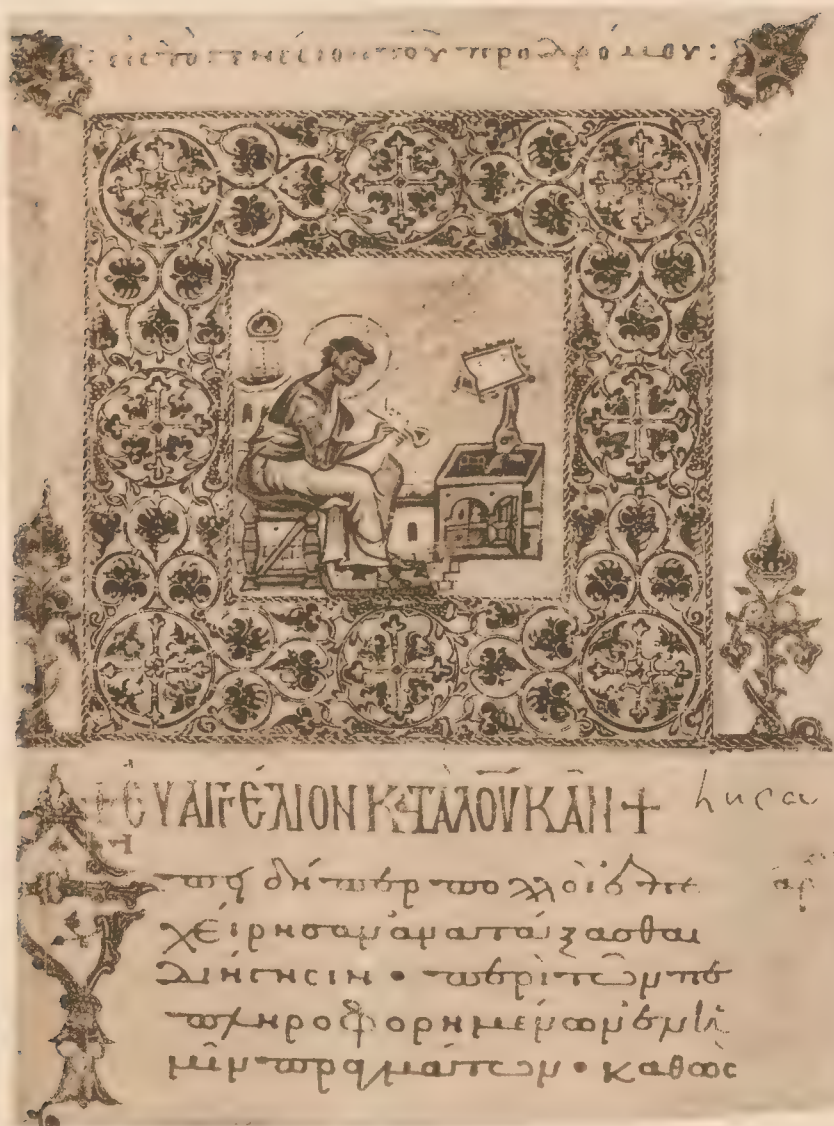 : εἰς τὸ γενέσιον τοῦ προδρόμου :
+ ΕΥΑΓΓΕΛΙΟΝ ΚΑΤΑ ΛΟΥΚΑΝ +
Ἐπειδήπερ πολλοὶ ἐπε αρ
χείρησαν ἀνατάξασθαι
διήγησιν · περὶ τῶν πε
πληροφορημένων ἐν ἡ
μῖν πραγμάτων · καθὼς